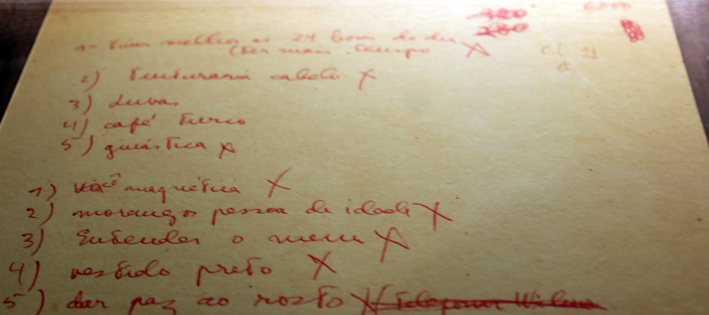 1- Viver melhor as 24 horas do dia
(Ter mais tempo X
2) Tintura no cabelo X
3) luvas
4) café turco
5) ginástica X
1) você magnética X
2) morangos pessoa de idade X
3) Entender o menu X
4) vestido preto X
5) dar paz ao rosto X Telefonar